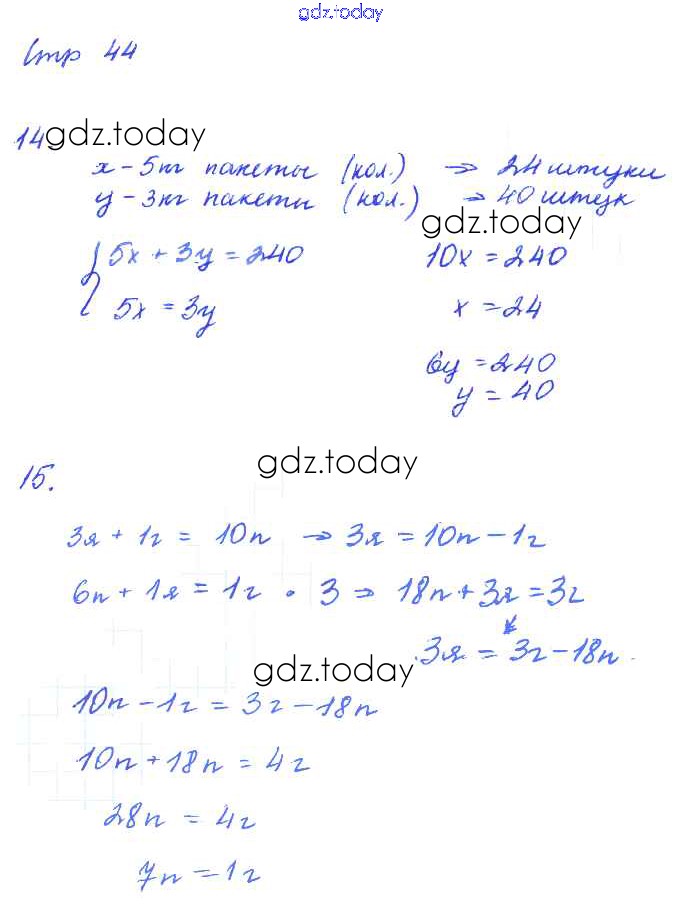 gdz.today
Стр 44
14 gdz.today
x - 5кг пакеты (кол.) → 24 штуки
y - 3кг пакеты (кол.) → 40 штук
gdz.today
{ 5x + 3y = 240 10x = 240
5x = 3y x = 24
6y = 240
y = 40
gdz.today
15.
3я + 1г = 10п → 3я = 10п - 1г
6п + 1я = 1г · 3 ⇒ 18п + 3я = 3г
3я = 3г - 18п
gdz.today
10п - 1г = 3г - 18п
10п + 18п = 4г
28п = 4г
7п = 1г